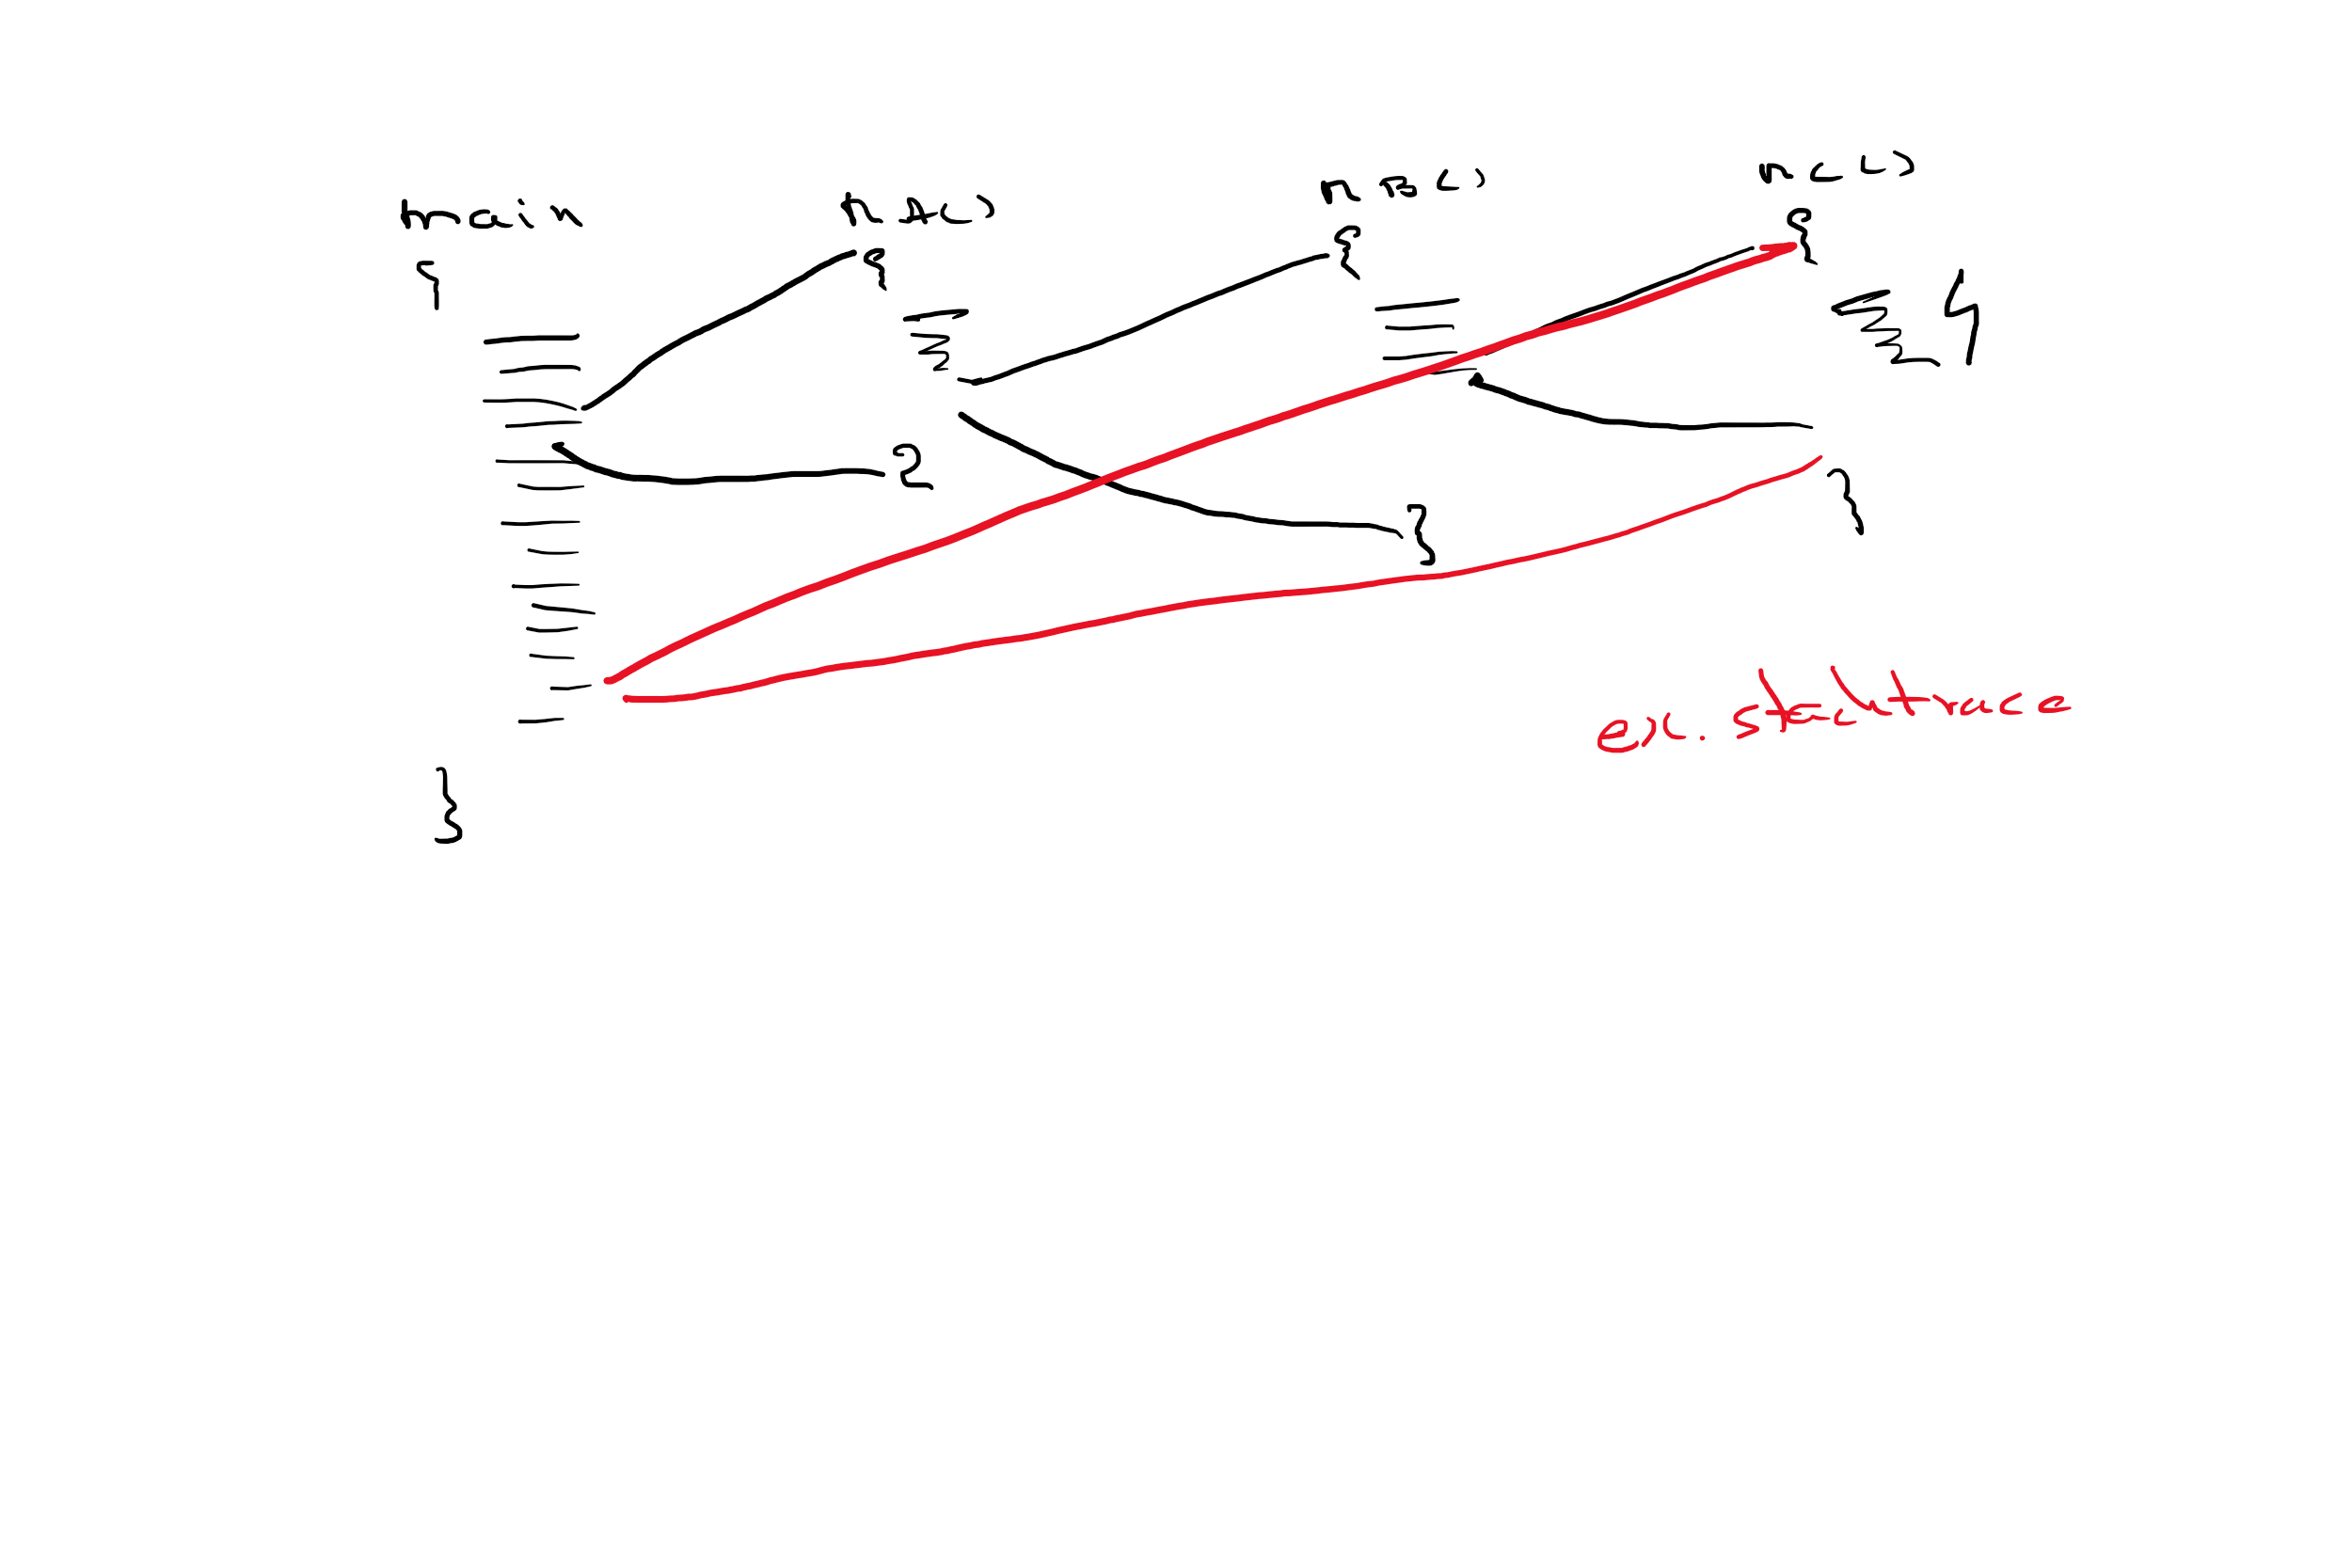 main mA() mB() mC()
{ { { {
4
} } }
}
ex. stackTrace